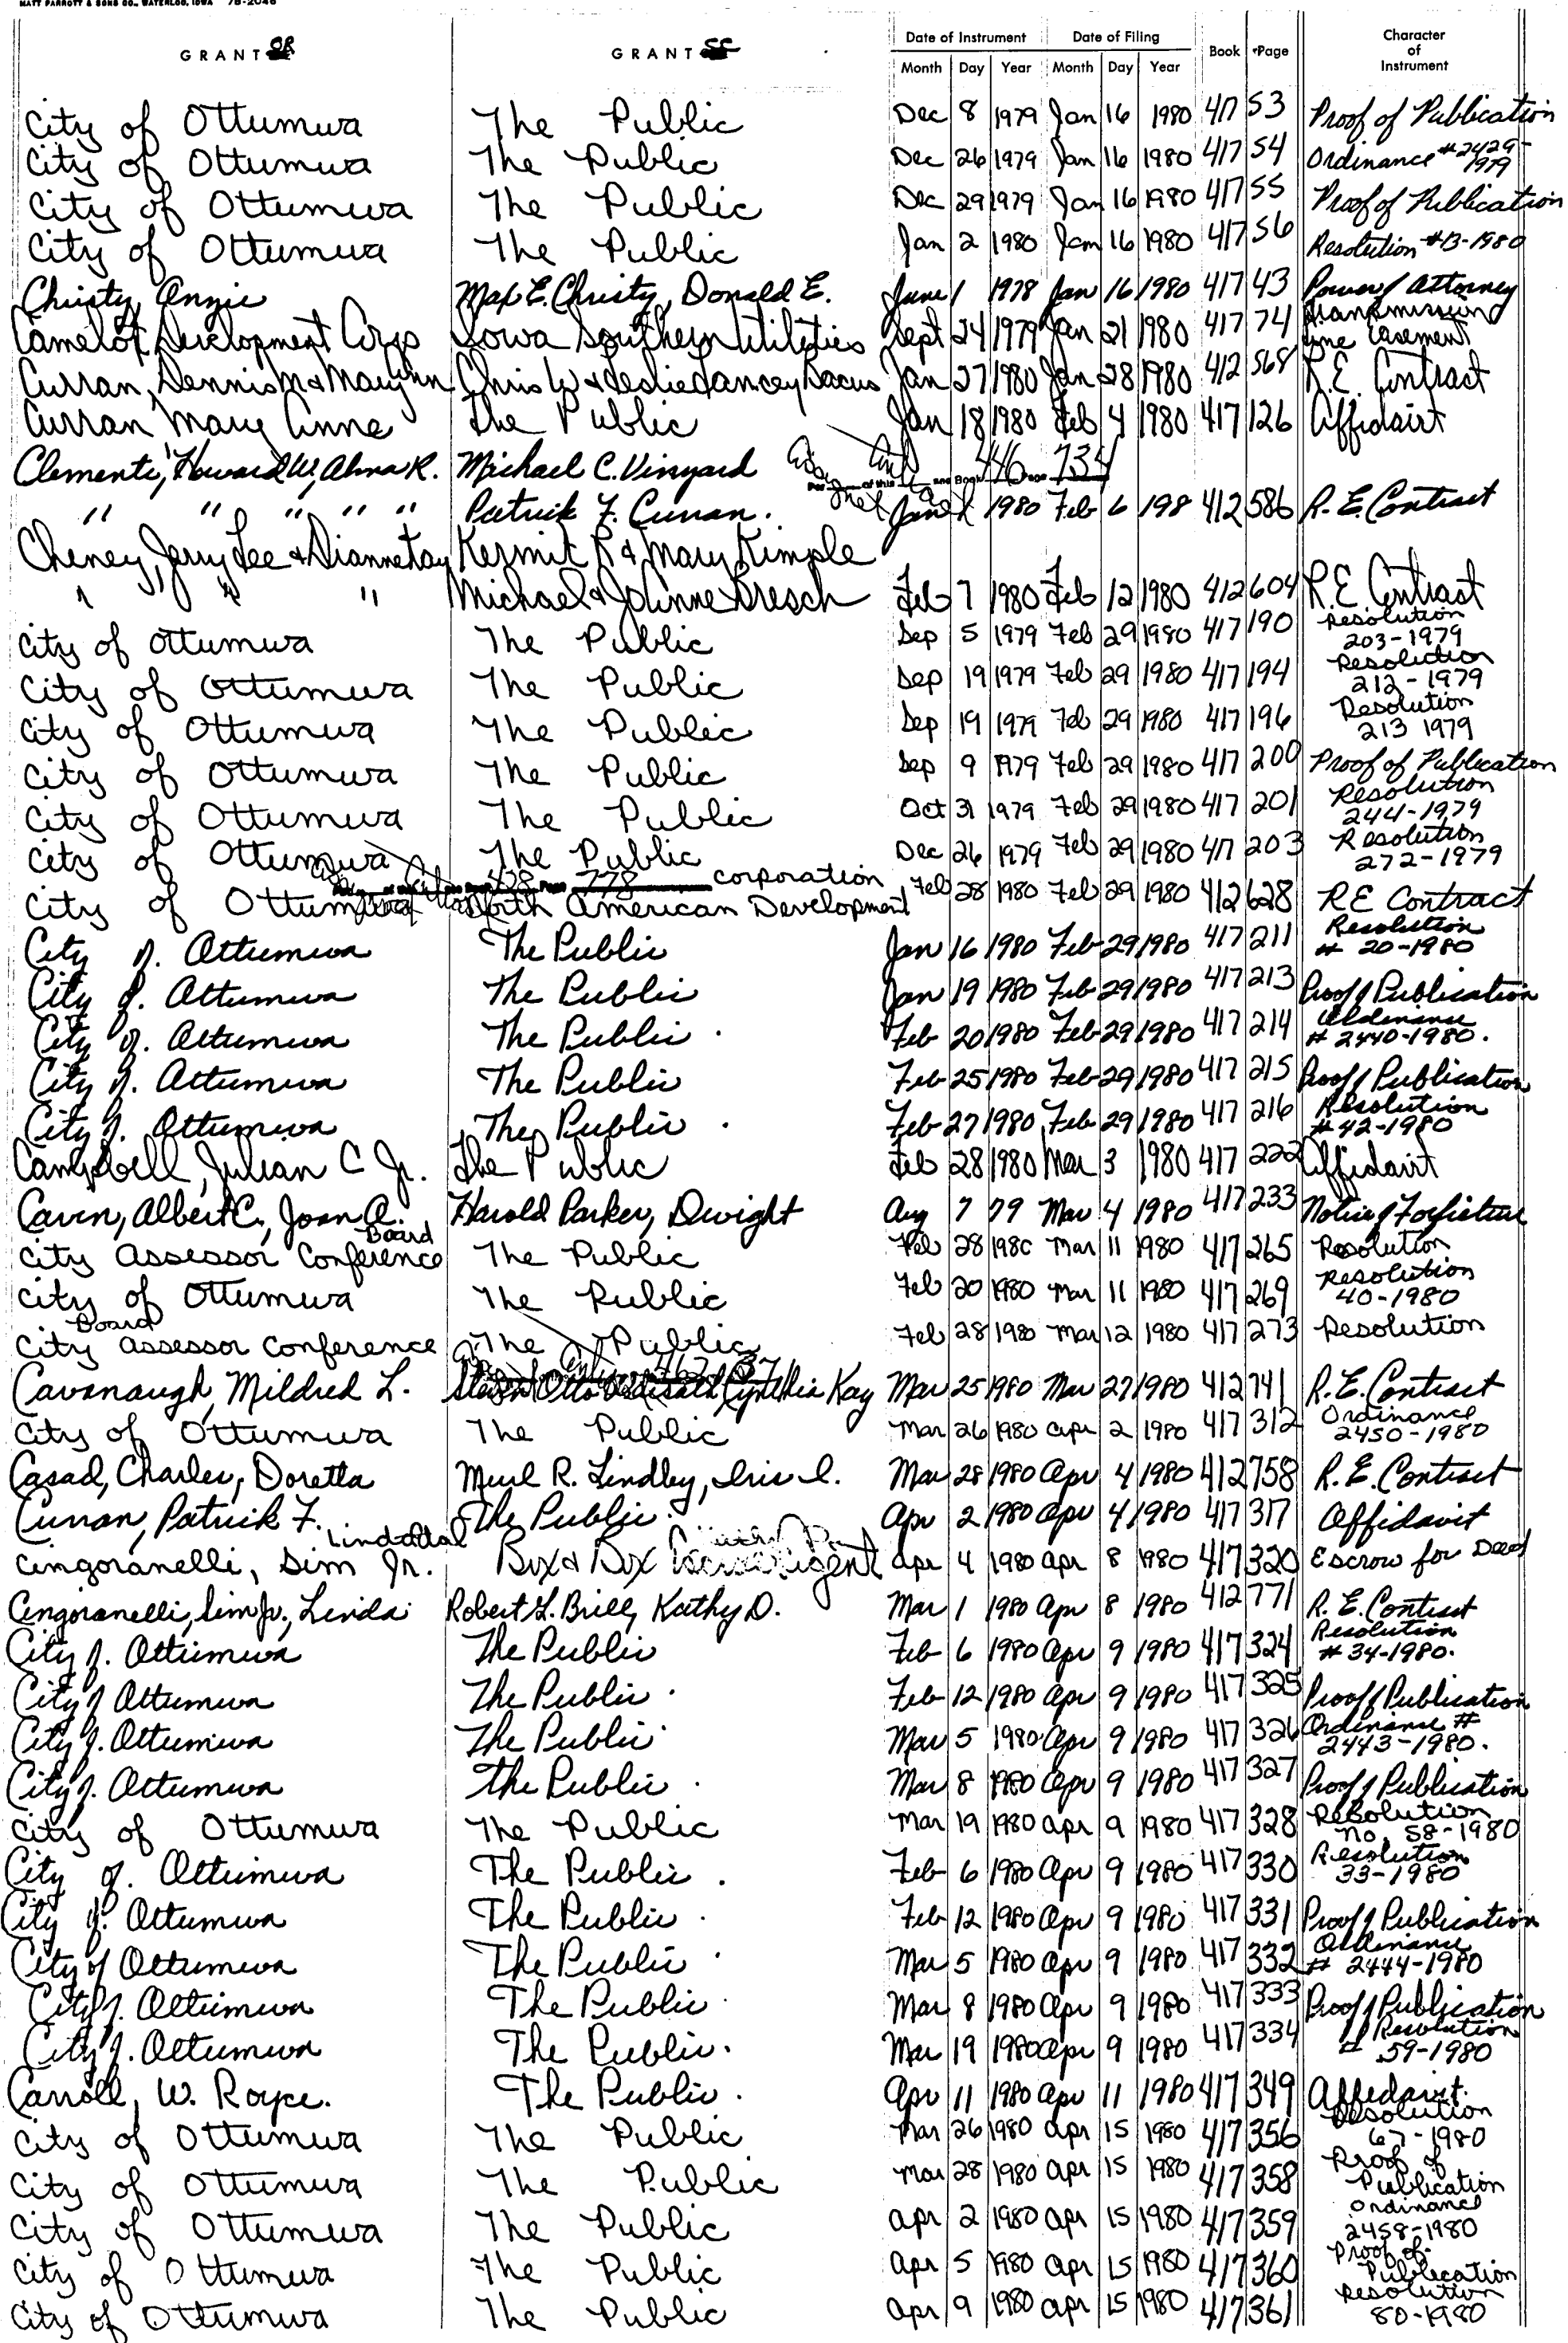 MATT PARROTT & SONS CO., WATERLOO, IOWA 78-2046
GRANTOR GRANTEE Date of Instrument Date of Filing Book Page Character of Instrument
Month Day Year Month Day Year
City of Ottumwa The Public Dec 8 1979 Jan 16 1980 417 53 Proof of Publication
City of Ottumwa The Public Dec 26 1979 Jan 16 1980 417 54 Ordinance #2429-1979
City of Ottumwa The Public Dec 29 1979 Jan 16 1980 417 55 Proof of Publication
City of Ottumwa The Public Jan 2 1980 Jan 16 1980 417 56 Resolution #13-1980
Christy, Angie Max E. Christy, Donald E. June 1 1978 Jan 16 1980 417 43 Power of Attorney
Camelot Development Corp Iowa Southern Utilities Sept 24 1979 Jan 21 1980 417 74 Transmission Line Easement
Curran, Dennis M & Mary Ann Chris W & Leslie Dancey Bacus Jan 27 1980 Jan 28 1980 412 568 R.E. Contract
Curran Mary Anne The Public Jan 18 1980 Feb 4 1980 417 126 Affidavit
Clements, Howard W, Alma R. Michael C. Vinyard and Book 446 Page 734
" " " " " Patrick F. Curran. Jan 1980 Feb 6 198 412 586 R.E. Contract
Cheney, Jerry Lee & Dianne Kay Kermit R & Mary Kimple
" " " Michael & JoAnne Bresch Feb 7 1980 Feb 12 1980 412 604 R.E Contract
City of Ottumwa The Public Sep 5 1979 Feb 29 1980 417 190 Resolution 203-1979
City of Ottumwa The Public Sep 19 1979 Feb 29 1980 417 194 Resolution 212-1979
City of Ottumwa The Public Sep 19 1979 Feb 29 1980 417 196 Resolution 213 1979
City of Ottumwa The Public Sep 9 1979 Feb 29 1980 417 200 Proof of Publication
City of Ottumwa The Public Oct 31 1979 Feb 29 1980 417 201 Resolution 244-1979
City of Ottumwa The Public Dec 26 1979 Feb 29 1980 417 203 Resolution 272-1979
City of Ottumwa North American Development corporation Feb 28 1980 Feb 29 1980 412 628 RE Contract
City of Ottumwa The Public Jan 16 1980 Feb 29 1980 417 211 Resolution # 20-1980
City of Ottumwa The Public Jan 19 1980 Feb 29 1980 417 213 Proof of Publication
City of Ottumwa The Public. Feb 20 1980 Feb 29 1980 417 214 Ordinance # 2440-1980.
City of Ottumwa The Public Feb 25 1980 Feb 29 1980 417 215 Proof of Publication
City of Ottumwa The Public. Feb 27 1980 Feb 29 1980 417 216 Resolution # 42-1980
Campbell, Julian C Jr. The Public Feb 28 1980 Mar 3 1980 417 222 Affidavit
Caven, Albert C., Joan A. Harold Parker, Dwight Aug 7 79 Mar 4 1980 417 233 Notice of Forfieture
City Assessor Conference Board The Public Feb 28 1980 Mar 11 1980 417 265 Resolution
City of Ottumwa The Public Feb 20 1980 Mar 11 1980 417 269 Resolution 40-1980
City Board Assessor Conference The Public Feb 28 1980 Mar 12 1980 417 273 Resolution
Cavanaugh, Mildred L. Steven Otto Cynthia Kay Mar 25 1980 Mar 27 1980 412 741 R.E. Contract
City of Ottumwa The Public Mar 26 1980 Apr 2 1980 417 312 Ordinance 2450-1980
Casad, Charles, Doretta Merl R. Lindley, Iris I. Mar 28 1980 Apr 4 1980 412 758 R.E. Contract
Curran, Patrick F. The Public. Apr 2 1980 Apr 4 1980 417 317 Affidavit
Cingoranelli, Sim Jr. Linda Box & Box Agent Apr 4 1980 Apr 8 1980 417 320 Escrow for Deed
Cingoranelli, Sim Jr., Linda Robert L. Brill, Kathy D. Mar 1 1980 Apr 8 1980 412 771 R.E. Contract
City of Ottumwa The Public Feb 6 1980 Apr 9 1980 417 324 Resolution # 34-1980.
City of Ottumwa The Public. Feb 12 1980 Apr 9 1980 417 325 Proof of Publication
City of Ottumwa The Public. Mar 5 1980 Apr 9 1980 417 326 Ordinance # 2443-1980.
City of Ottumwa The Public. Mar 8 1980 Apr 9 1980 417 327 Proof of Publication
City of Ottumwa The Public Mar 19 1980 Apr 9 1980 417 328 Resolution no. 58-1980
City of Ottumwa The Public. Feb 6 1980 Apr 9 1980 417 330 Resolution 33-1980
City of Ottumwa The Public. Feb 12 1980 Apr 9 1980 417 331 Proof of Publication
City of Ottumwa The Public. Mar 5 1980 Apr 9 1980 417 332 Ordinance # 2444-1980
City of Ottumwa The Public. Mar 8 1980 Apr 9 1980 417 333 Proof of Publication
City of Ottumwa The Public. Mar 19 1980 Apr 9 1980 417 334 Resolution # 59-1980
Carroll, W. Royce. The Public. Apr 11 1980 Apr 11 1980 417 349 Affidavit.
City of Ottumwa The Public Mar 26 1980 Apr 15 1980 417 356 Resolution 67-1980
City of Ottumwa The Public Mar 28 1980 Apr 15 1980 417 358 Proof of Publication
City of Ottumwa The Public Apr 2 1980 Apr 15 1980 417 359 Ordinance 2458-1980
City of Ottumwa The Public Apr 5 1980 Apr 15 1980 417 360 Proof of Publication
City of Ottumwa The Public Apr 9 1980 Apr 15 1980 417 361 Resolution 80-1980